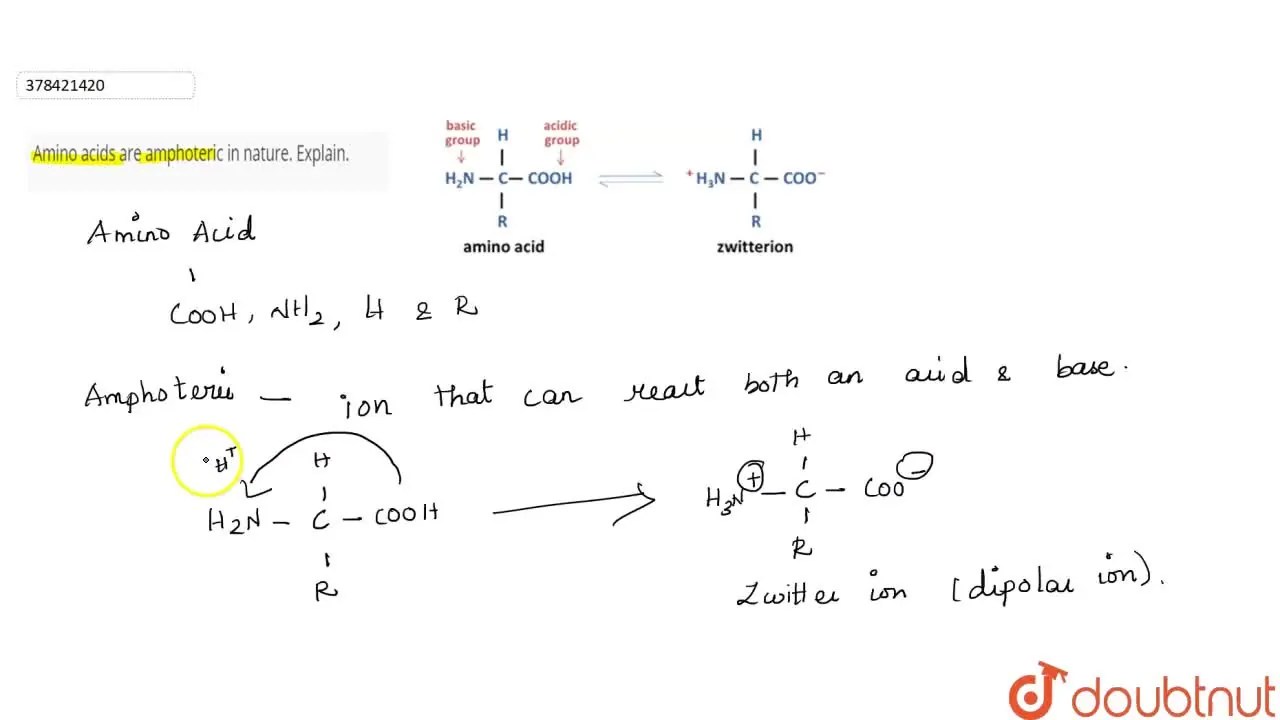 378421420
Amino acids are amphoteric in nature. Explain.
basic group
acidic group
H
H₂N — C — COOH
R
amino acid
H
⁺H₃N — C — COO⁻
R
zwitterion
Amino Acid
COOH, NH2, H & R
Amphoteric — ion that can react both an acid & base.
H+
H
H2N – C – COOH
R
H
H3N+ – C – COO–
R
Zwitter ion (dipolar ion).
doubtnut